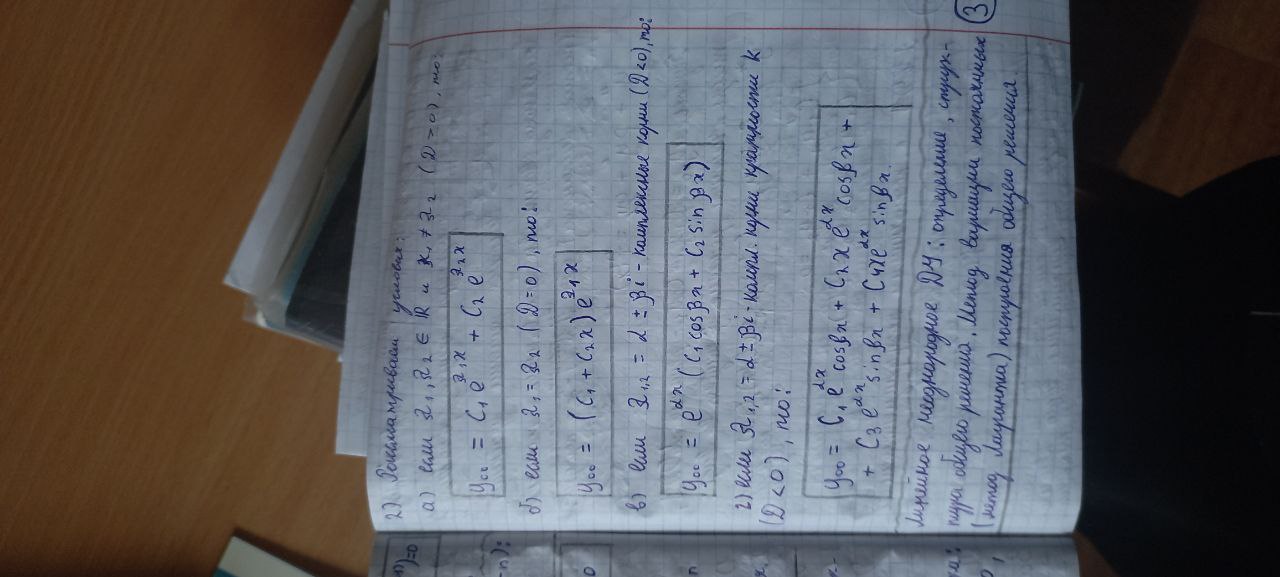 2) Рассматриваем условия:
а) если λ₁, λ₂ ∈ ℝ и λ₁ ≠ λ₂ (D=0), то:
y₀₀ = C₁e^{λ₁x} + C₂e^{λ₂x}
б) если λ₁ = λ₂ (D=0), то:
y₀₀ = (C₁ + C₂x)e^{λ₁x}
в) если λ₁,₂ = α ± βi - комплексные корни (D<0), то:
y₀₀ = e^{αx} (C₁cosβx + C₂ sinβx)
г) если λ₁,₂ = α ± βi - компл. корни кратности k
(D<0), то:
y₀₀ = C₁e^{αx} cosβx + C₂xe^{αx} cosβx +
+ C₃e^{αx} sinβx + C₄xe^{αx} sinβx.
Линейное неоднородное ДУ: определение, струк-
тура общего решения. Метод вариации постоянных
(метод Лагранжа) построения общего решения.
3
)=0
-n):
0
n
x.
к-